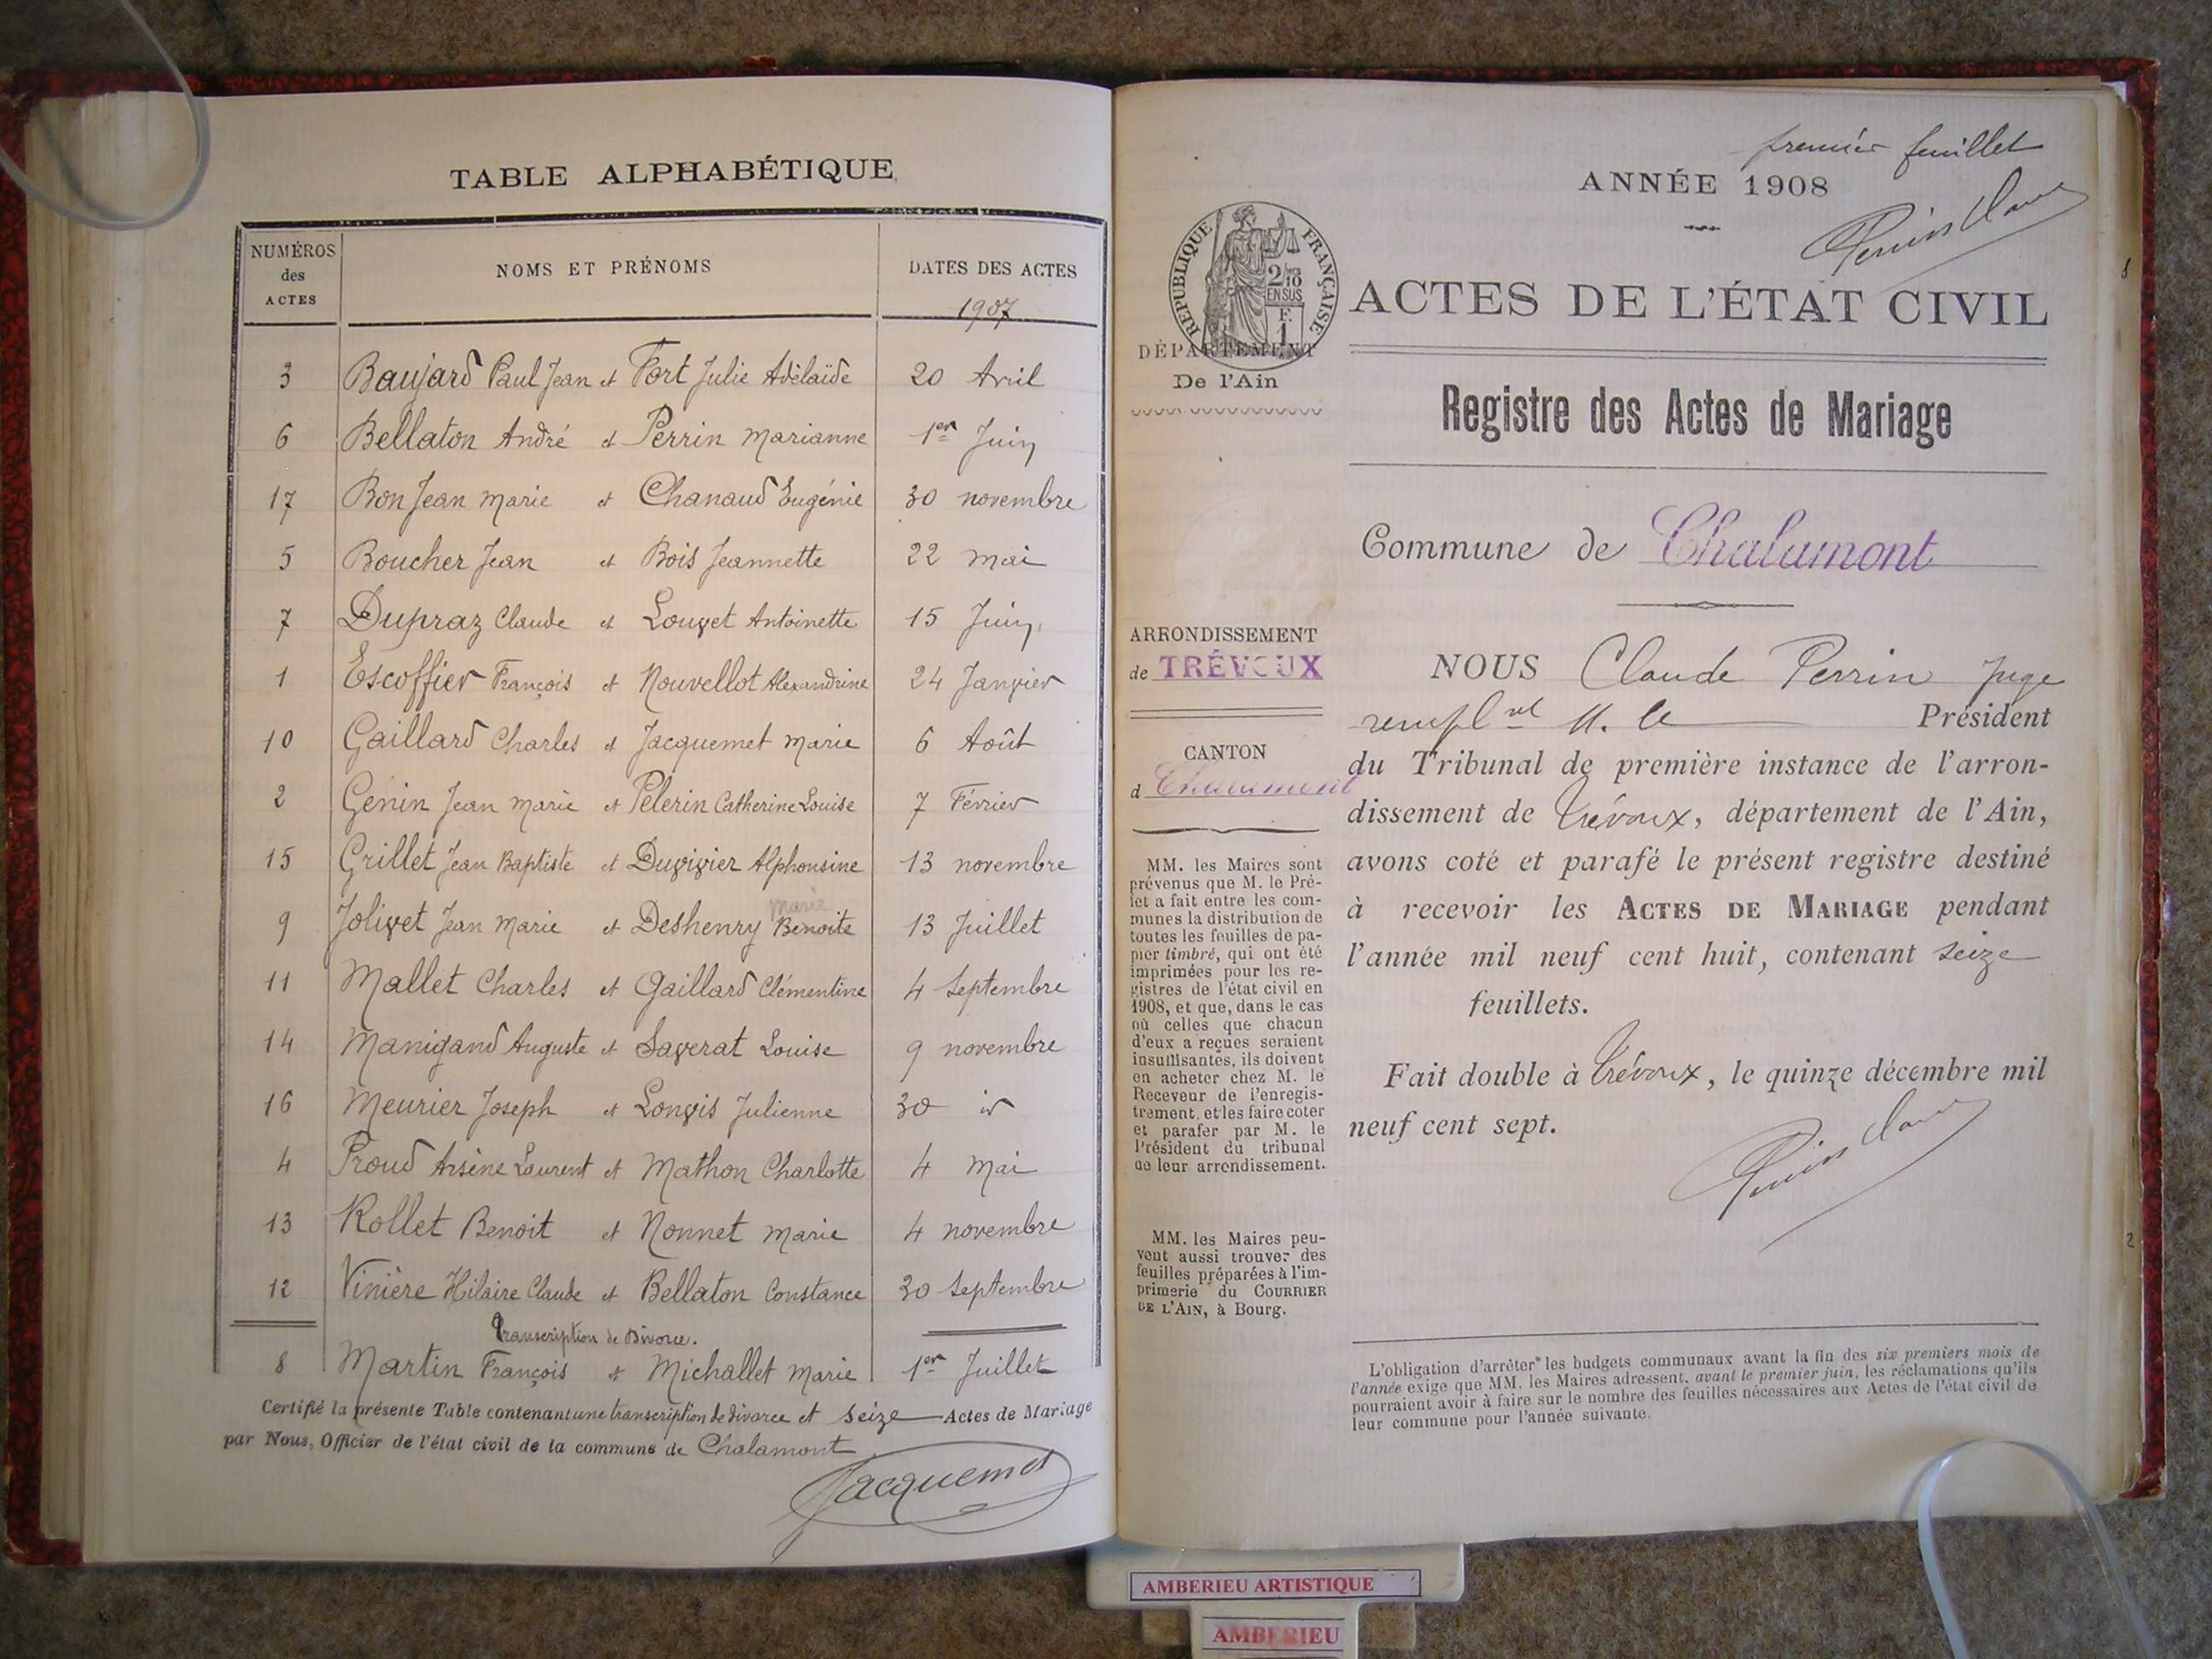 TABLE ALPHABÉTIQUE
NUMÉROS des ACTES NOMS ET PRÉNOMS DATES DES ACTES
1907
3 Baujard Paul Jean et Fort Julie Adélaïde 20 Avril
6 Bellaton André et Perrin Marianne 1er Juin
17 Bon Jean Marie et Chanaud Eugénie 30 novembre
5 Boucher Jean et Bois Jeannette 22 Mai
7 Dupraz Claude et Louvet Antoinette 15 Juin
1 Escoffier François et Nouvellot Alexandrine 24 Janvier
10 Gaillard Charles et Jacquemet Marie 6 Août
2 Génin Jean Marie et Pélerin Catherine Louise 7 Février
15 Grillet Jean Baptiste et Duvivier Alphonsine 13 novembre
marie
9 Jolivet Jean Marie et Deshenry Benoite 13 Juillet
11 Mallet Charles et Gaillard Clémentine 4 Septembre
14 Manigand Auguste et Saverat Louise 9 novembre
16 Meurier Joseph et Longis Julienne 30
4 Proud Arsène Laurent et Mathon Charlotte 4 Mai
13 Rollet Benoit et Nonnet Marie 4 novembre
12 Vinière Hilaire Claude et Bellaton Constance 30 Septembre
Transcription de Divorce.
8 Martin François et Michallet Marie 1er Juillet
Certifié la présente Table contenant une transcription de divorce et seize Actes de Mariage
par Nous, Officier de l'état civil de la commune de Chalamont
Jacquemet
premier feuillet
ANNÉE 1908
Perrin Claude
RÉPUBLIQUE FRANÇAISE
2/10
EN SUS
F.
1
ACTES DE L'ÉTAT CIVIL
DÉPARTEMENT
De l'Ain
Registre des Actes de Mariage
Commune de Chalamont
ARRONDISSEMENT
de TRÉVOUX
CANTON
d Chalamont
MM. les Maires sont
prévenus que M. le Pré-
fet a fait entre les com-
munes la distribution de
toutes les feuilles de pa-
pier timbré, qui ont été
imprimées pour les re-
gistres de l'état civil en
1908, et que, dans le cas
où celles que chacun
d'eux a reçues seraient
insuffisantes, ils doivent
en acheter chez M. le
Receveur de l'enregis-
trement, et les faire coter
et parafer par M. le
Président du tribunal
de leur arrondissement.
MM. les Maires peu-
vent aussi trouver des
feuilles préparées à l'im-
primerie du COURRIER
DE L'AIN, à Bourg.
NOUS Claude Perrin Juge
rempl nt M. le Président
du Tribunal de première instance de l'arron-
dissement de Trévoux, département de l'Ain,
avons coté et parafé le présent registre destiné
à recevoir les ACTES DE MARIAGE pendant
l'année mil neuf cent huit, contenant seize
feuillets.
Fait double à Trévoux, le quinze décembre mil
neuf cent sept.
Perrin Claude
L'obligation d'arrêter les budgets communaux avant la fin des six premiers mois de
l'année exige que MM. les Maires adressent, avant le premier juin, les réclamations qu'ils
pourraient avoir à faire sur le nombre des feuilles nécessaires aux Actes de l'état civil de
leur commune pour l'année suivante.
2
AMBERIEU ARTISTIQUE
AMBERIEU